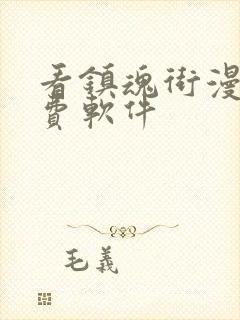 看鎮魂街漫
費軟件
毛義